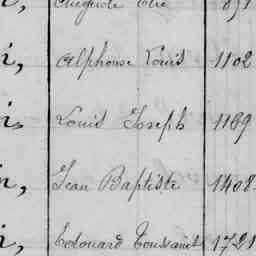 Auguste Elie 891
i, Alphonse Louis 1102
i, Louis Joseph 1169
n, Jean Baptiste 1408
i, Edouard Toussaint 1721